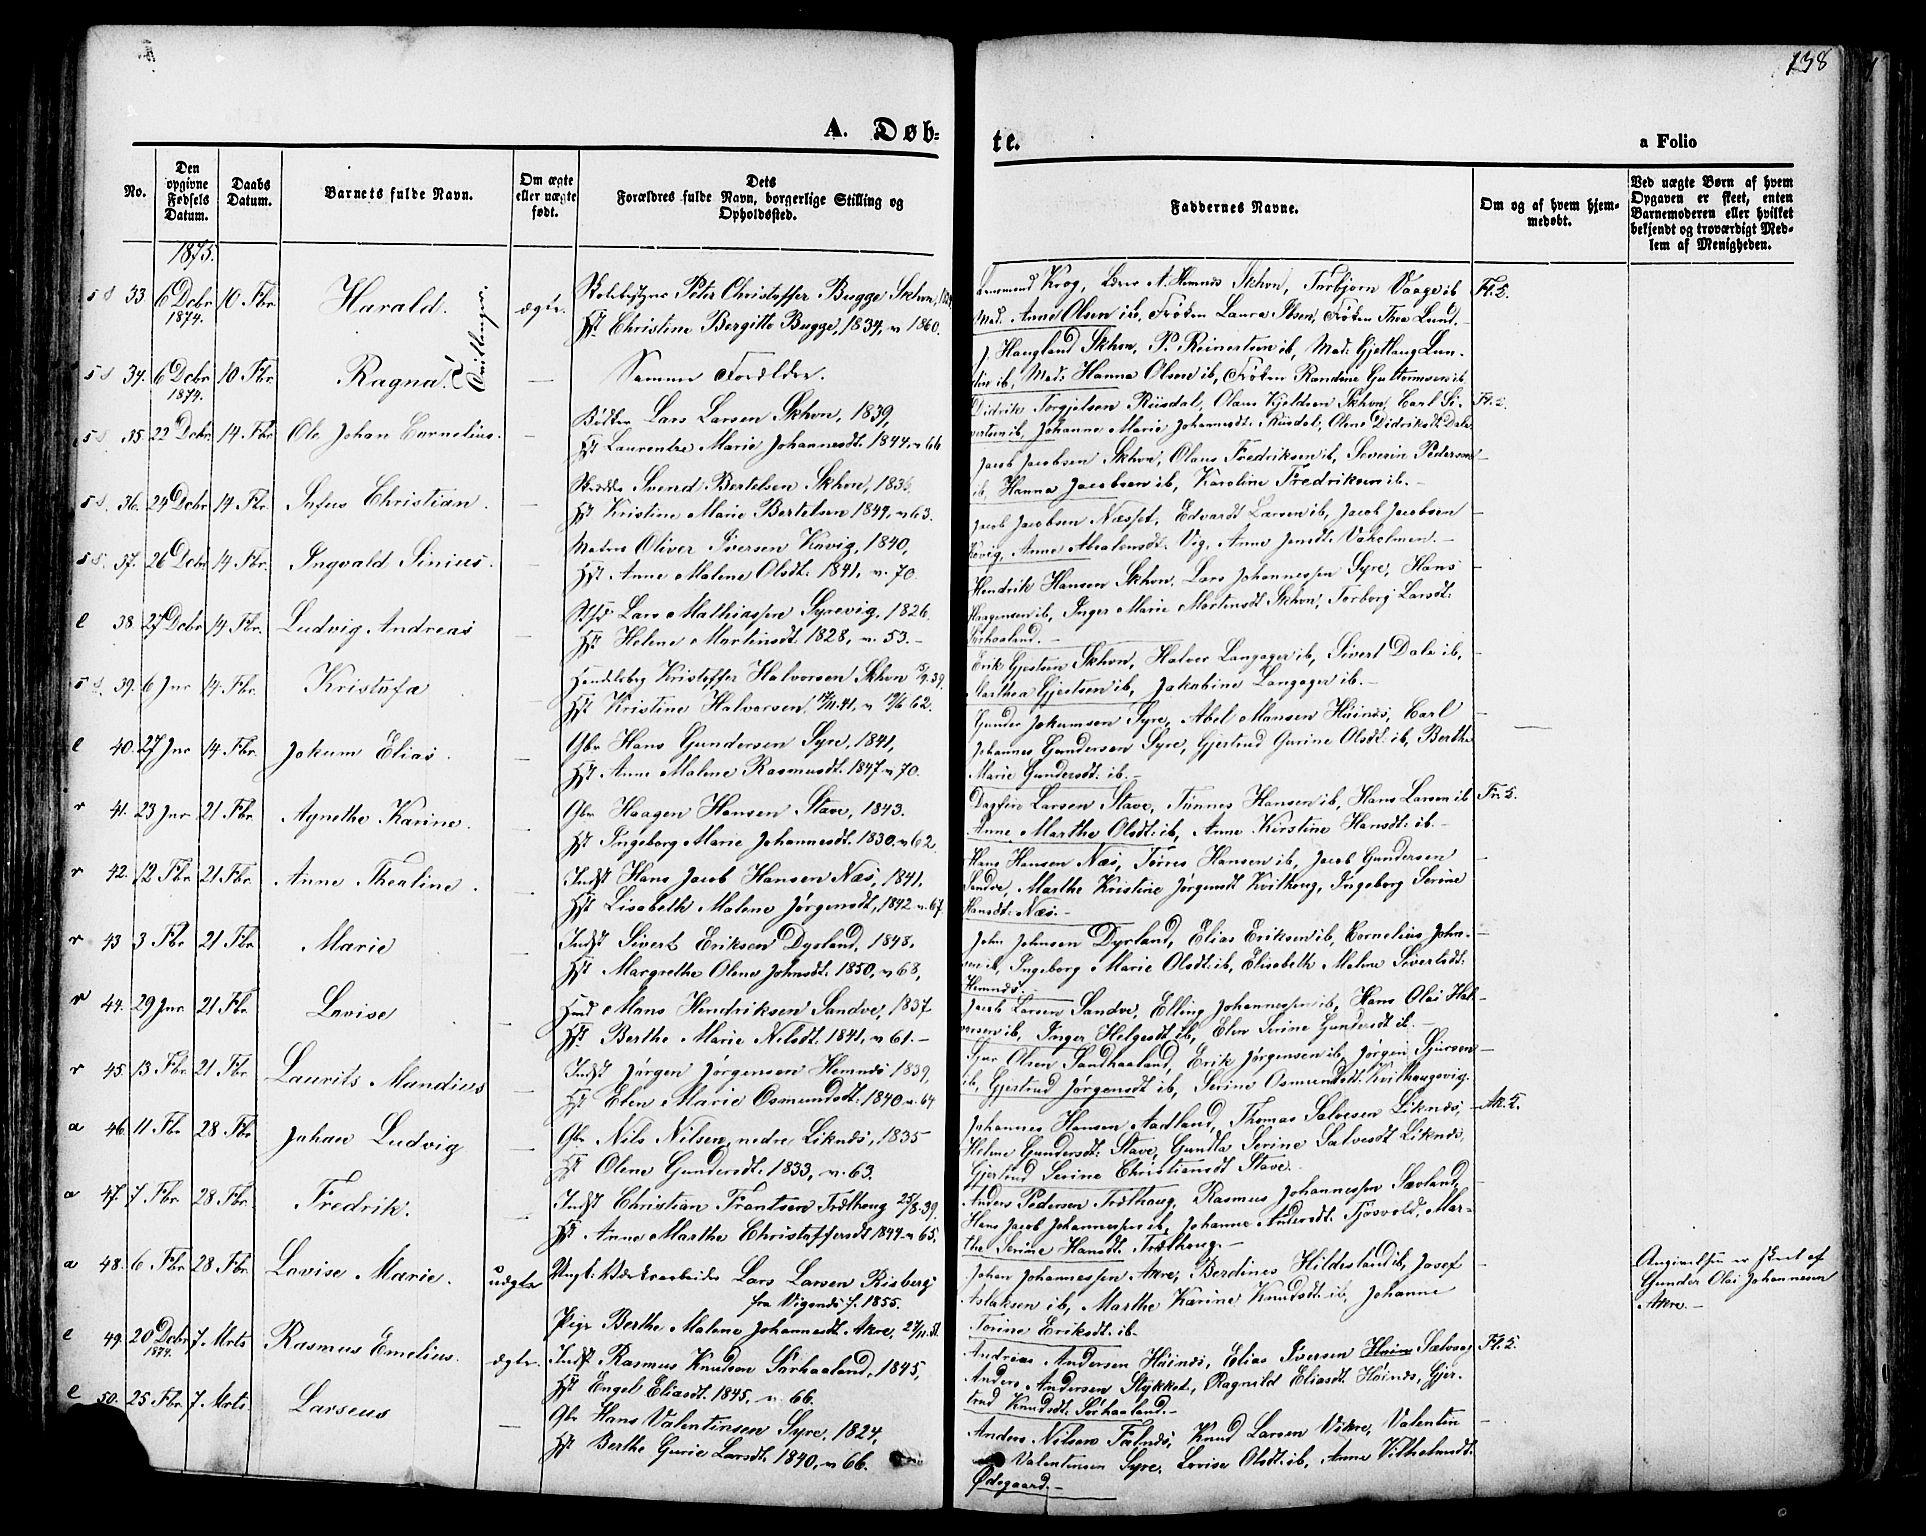 138
A. Døb-
te.
a Folio
No.
Den opgivne Fødsels Datum.
Daabs Datum.
Barnets fulde Navn.
Om ægte eller uægte født.
Dets Forældres fulde Navn, borgerlige Stilling og Opholdssted.
Faddernes Navne.
Om og af hvem hjem-
medøbt.
Ved uægte Børn af hvem
Opgaven er skeet, enten
Barnemoderen eller hvilket
bekjendt og troværdigt Med-
lem af Menigheden.
1875.
33 6 Dcbr 1874. 10 Fbr Harald. Tvillinger ægte.
Peter Christoffer Bugge Skhvn,
Hst. Christine Bergitte Bugge, 1834, v 1860.
Krog, A. Hemnes Skhvn, Torbjørn Vaage ib
Mad. Anne Olsen ib, Frøken Laura Ibsen, Frøken Thea Lund.
34. 6 Dcbr 1874. 10 Fbr Ragna. —
Samme Forældre.
J. Haugland Skhvn, P. Reinertsen ib, Mad:
ib, Mad: Hanna Olsen ib, Frøken Randine Guttormsen ib.
35 22 Dcbr 14 Fbr Ole Johan Cornelius. —
Bødker Lars Larsen Skhvn, 1839,
Hst Laurentze Marie Johannesdt. 1844. v 66
Didrik Torgjelsen Riisdal, Olaus Kjeldsen Skhvn, Carl Si-
vertsen ib, Johanne Marie Johannesdt. Riisdal, Olene Didriksdt. Dale
36. 24 Dcbr 14 Fbr. Sofus Christian. —
Svend Bertelsen Skhvn, 183
Hst Kristine Marie Bertelsen 1844, v 63.
Jacob Jacobsen Skhvn, Olaus Fredriksen ib, Severin Pedersen
ib, Hanna Jacobsen ib, Karoline Fredriksen ib. —
37. 26 Dcbr 14 Fbr. Ingvald Sinius. —
Oliver Iversen Kavig, 1840,
Hst Anne Malene Olsdt. 1841, v. 70.
Jacob Jacobsen Næsset, Edvardt Larsen ib, Jacob Jacobsen
Kavig, Anne Absalonsdt. Vig, Anne Jensdt. Vaholmen. —
38. 27 Dcbr 14 Fbr. Ludvig Andreas —
Lars Mathiassen Syrevig, 1826.
Hst Helene Martinsdt. 1828, v. 53. —
Hendrik Hansen Skhvn, Lars Johannessen Syre, Hans
ib, Inger Marie Mortensdt Skhvn, Torborg Larsdt.
Sørhaaland. —
39. 6 Jnr 14. Fbr. Kristofa —
Kristoffer Halvorsen Skhvn
Hst Kristine Halvorsen,
Erik Gjertsen Skhvn, Halvor Langager ib, Sivert Dale ib,
Marthea Gjertsen ib, Jakobine Langager ib. —
40. 27 Jnr 14. Fbr. Jokum Elias. —
Gbr Hans Gundersen Syre, 1841,
Hst Anne Malene Rasmusdt. 1847 v 70.
Gunder Jokumsen Syre, Abel Monsen Høinæs, Carl
Johannes Gundersen Syre, Gjertrud Gurine Olsdt. ib, Berthe
Marie Gundersdt. ib. —
41. 23 Jnr 21 Fbr. Agnethe Karine. —
Gbr Haagen Hansen Stave, 1843.
Hst Ingeborg Marie Johannesdt. 1830. v 62.
Dagfin Larsen Stave, Tønnes Hansen ib, Hans Larsen ib
Anne Marthe Olsdt. ib, Anne Kirstine Hansdt. ib. —
42. 12 Fbr 21 Fbr. Anne Thealine. —
Indst Hans Jacob Hansen Næs, 1841,
Hst Lisabeth Malene Jørgensdt, 1842 v. 67.
Hans Hansen Næs, Tønnes Hansen ib, Jacob Gundersen
Sandve, Marthe Kristine Jørgensdt Kvilhoug, Ingeborg Serine
Hansdt. Næs. —
43 3 Fbr 21 Fbr. Marie —
Indst Sivert Eriksen Dyrland, 1848.
Hst Margrethe Olene Johnsdt. 1850, v 68,
John Johnsen Dyrland, Elias Eriksen ib, Cornelius John-
sen ib, Ingeborg Marie Olsdt. ib, Elisabeth Malene Sivertsdt.
Hemnæs. —
44. 29 Jnr 21 Fbr Lovise —
Mons Hendriksen Sandve, 1837
Hst. Berthe Marie Nilsdt. 1841, v 61. —
Jacob Larsen Sandve, Elling Johannessen ib, Hans Olai Hal-
vorsen ib, Inger Helgesdt ib, Elen Serine Gundersdt ib. —
45. 13 Fbr. 21 Fbr Laurits Mandius —
Indst Jørgen Jørgensen Hemnæs 1839,
Hst Elen Marie Osmundsdt. 1840 v. 64
Sjur Olsen Sandhaaland, Erik Jørgensen ib, Jørgen Sjursen
ib, Gjertrud Jørgensdt ib, Serine Osmundsdt. Kvilhaugsvig.
46. 11 Fbr. 28 Fbr. Johan Ludvig —
Gbr Nils Nilsen, nedre Liknæs, 1835
Hst Olene Gundersdt. 1833, v. 63.
Johannes Hansen Aadland, Thomas Salvesen Liknæs,
Helene Gundersdt. Stave, Gundla Serine Salvesdt Liknæs,
Gjertrud Serine Christiansdt Stave.
47. 7 Fbr. 28 Fbr. Fredrik. —
Indst Christian Frantsen Trætheug 25/8.39.
Hst Anne Marthe Christoffersdt 1844 v 65.
Anders Pedersen Trætheug, Rasmus Johannessen Sævland,
Hans Jacob Johannessen ib, Johanne Andersdt. Tjøsvold, Mar-
the Serine Hansdt. Trætheug. —
48. 6 Fbr. 28 Fbr. Lovise Marie. uægte
Ungk. Værksarbeider Lars Larsen Risberg
fra Vigenæs f. 1855.
Pige Berthe Malene Johannesdt. Akre,
Johan Johannessen Akre, Berdines Hildesland ib, Josef
Aslaksen ib, Marthe Karine Knudsdt. ib, Johanne
Torine Eriksdt. ib.
Angivelsen er skeet af
Gunder Olai Johannesen
Akre. —
49. 20 Dcbr 1874. 7. Mrts Rasmus Emelius. ægte.
Indst Rasmus Knudsen Sørhaaland, 1845,
Hst Engel Eliasdt. 1845, v. 66.
Andreas Andersen Høinæs, Elias Iversen Sælvaag
Anders Andersen Stykket, Ragnild Eliasdt. Høinæs, Gjer-
trud Knudsdt. Sørhaaland. —
50. 25 Fbr. 7. Mrts. Larseus —
Gbr Hans Valentinsen Syre, 1824,
Hst Berthe Gurie Larsdt. 1840, v 66.
Anders Nilsen Fælnæs, Knud Larsen Vikre, Valentin
Valentinsen Syre, Lovise Olsdt. ib, Anne Vilhelmsdt.
Ødegaard. —